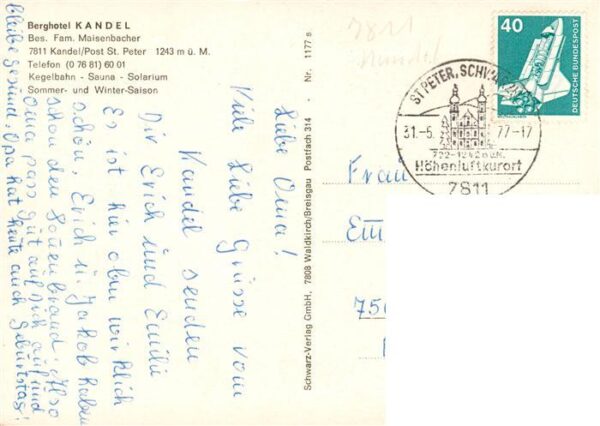 Berghotel KANDEL
Bes. Fam. Maisenbacher
7811 Kandel/Post St. Peter 1243 m ü. M.
Telefon (0 76 81) 60 01
Kegelbahn - Sauna - Solarium
Sommer- und Winter-Saison
Liebe Oma!
Viele Liebe Grüsse vom
Kandel senden
Dir Erich und Emilie
Es ist hier oben wirklich
schön, Erich u. Jakob haben
schon den Sonnenbrand. Also
Oma pass gut auf Dich auf und
bleibe gesund, Opa hat heute auch Geburtstag!
Schwarz-Verlag GmbH, 7808 Waldkirch/Breisgau Postfach 314 · Nr. 1177 s
7811
Kandel
40
DEUTSCHE BUNDESPOST
ST PETER, SCHWARZW
31.-5. 77-17
722-1242 m ü.M.
Höhenluftkurort
7811
Frau
750